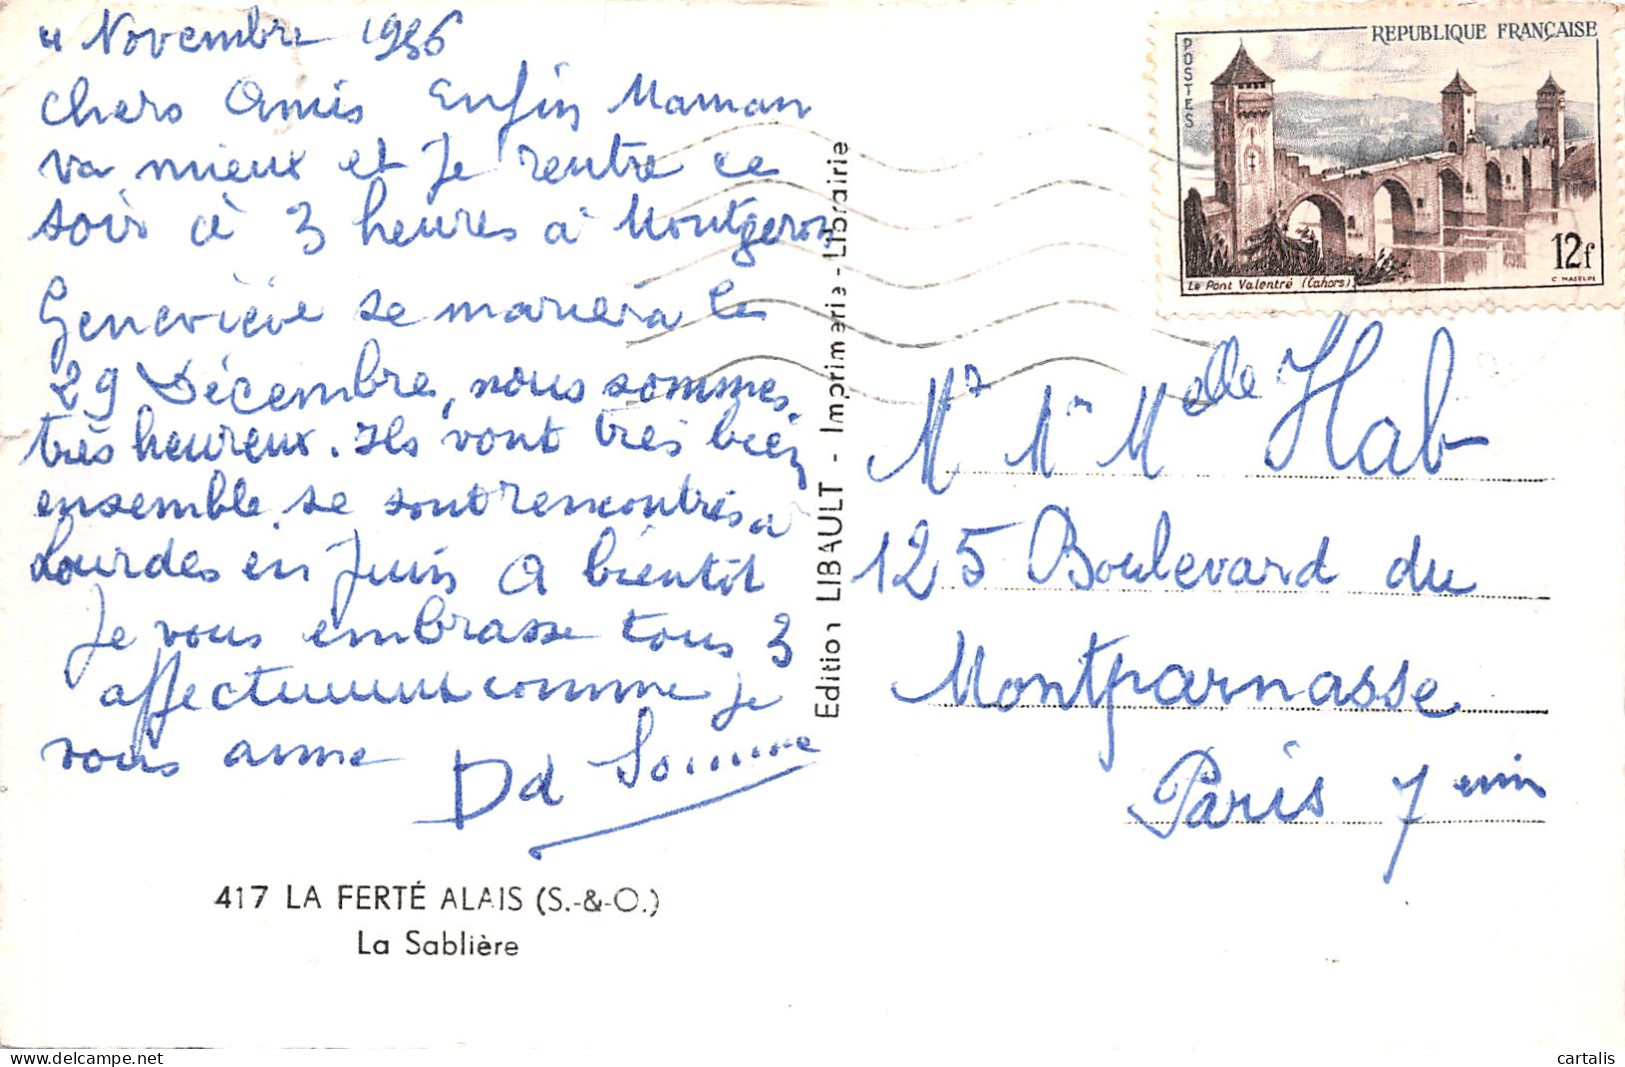 4 Novembre 1956
chers Amis Enfin Maman
va mieux et Je rentre ce
soir à 3 heures à Montgeron
Geneviève se mariera le
29 Décembre, nous sommes
très heureux. Ils vont très bien
ensemble. se sont rencontrés à
Lourdes en Juin A bientôt
Je vous embrasse tous 3
affectueusement comme je
vous aime
417 LA FERTÉ ALAIS (S.-&-O.)
La Sablière
Edition LIBAULT - Imprimerie - Librairie
POSTES
REPUBLIQUE FRANÇAISE
12f
Le Pont Valentré (Cahors)
C. MAZELIN
Mr Mme Melle Hab
125 Boulevard du
Montparnasse
Paris 7 em
cartalis